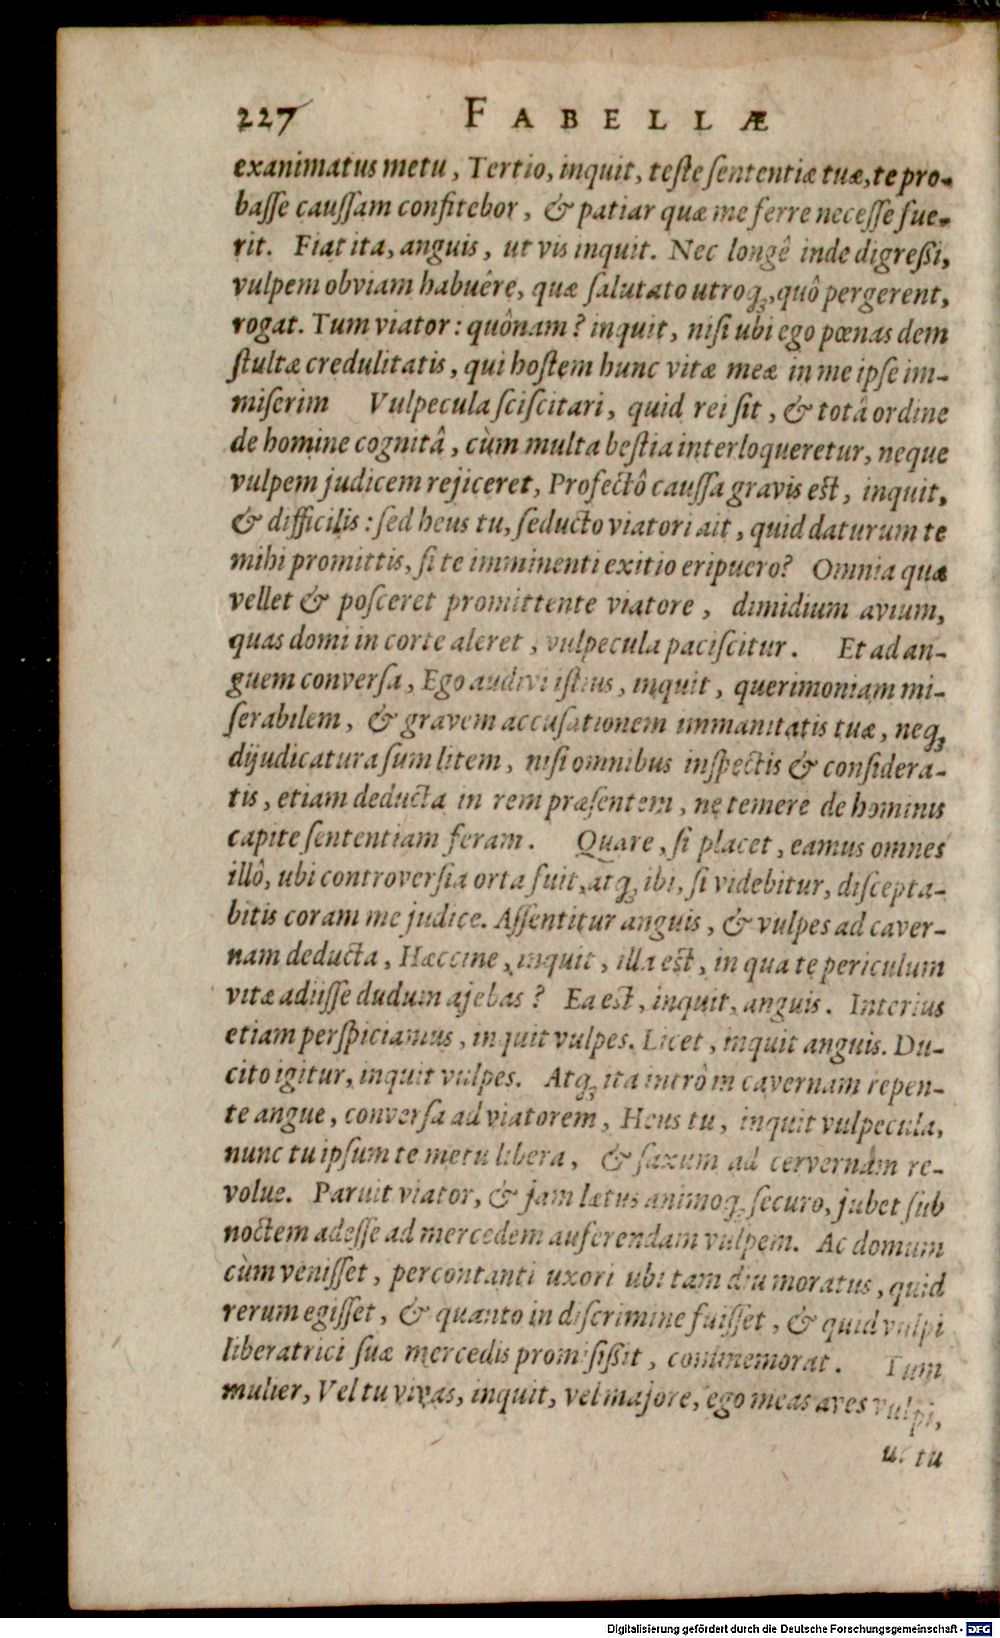 227 FABELLÆ
exanimatus metu, Tertio, inquit, teste sententiæ tuæ, te pro-
basse caussam confitebor, & patiar quæ me ferre necesse fue-
rit. Fiat ita, anguis, ut vis inquit. Nec longê inde digressi,
vulpem obviam habuêre, quæ salutato utroq;, quô pergerent,
rogat. Tum viator: quônam? inquit, nisi ubi ego pœnas dem
stultæ credulitatis, qui hostem hunc vitæ meæ in me ipse im-
miserim Vulpecula sciscitari, quid rei sit, & totâ ordine
de homine cognitâ, cùm multa bestia interloqueretur, neque
vulpem judicem rejiceret, Profectô caussa gravis est, inquit,
& difficilis: sed heus tu, seducto viatori ait, quid daturum te
mihi promittis, si te imminenti exitio eripuero? Omnia quæ
vellet & posceret promittente viatore, dimidium avium,
quas domi in corte aleret, vulpecula paciscitur. Et ad an-
guem conversa, Ego audivi istius, inquit, querimoniam mi-
serabilem, & gravem accusationem immanitatis tuæ, neq;
dijudicatura sum litem, nisi omnibus inspectis & considera-
tis, etiam deducta in rem præsentem, ne temere de hominis
capite sententiam feram. Quare, si placet, eamus omnes
illô, ubi controversia orta fuit, atq; ibi, si videbitur, discepta-
bitis coram me judice. Assentitur anguis, & vulpes ad caver-
nam deducta, Hæccine, inquit, illa est, in qua te periculum
vitæ adiisse dudum ajebas? Ea est, inquit, anguis. Interius
etiam perspiciamus, inquit vulpes. Licet, inquit anguis. Du-
cito igitur, inquit vulpes. Atq; ita intrô in cavernam repen-
te angue, conversa ad viatorem, Heus tu, inquit vulpecula,
nunc tu ipsum te metu libera, & saxum ad cervernam re-
volue. Paruit viator, & jam lætus animoq; securo, jubet sub
noctem adesse ad mercedem auferendam vulpem. Ac domum
cùm venisset, percontanti uxori ubi tam diu moratus, quid
rerum egisset, & quanto in discrimine fuisset, & quid vulpi
liberatrici suæ mercedis promisissit, commemorat. Tum
mulier, Vel tu vivas, inquit, vel majore, ego meas aves vulpi,
ut tu
Digitalisierung gefördert durch die Deutsche Forschungsgemeinschaft - DFG